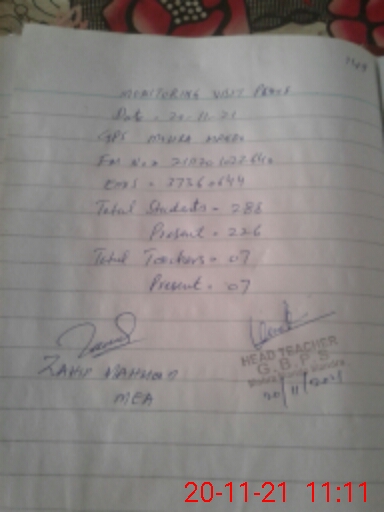 MONITORING VISIT PROOF
Date = 20-11-21
GPS
EMIS = 37360644
Total Students = 288
Present = 226
Total Teachers = 07
Present = 07
MEA
HEAD TEACHER
G.B.P.S
20/11/2021
20-11-21 11:11